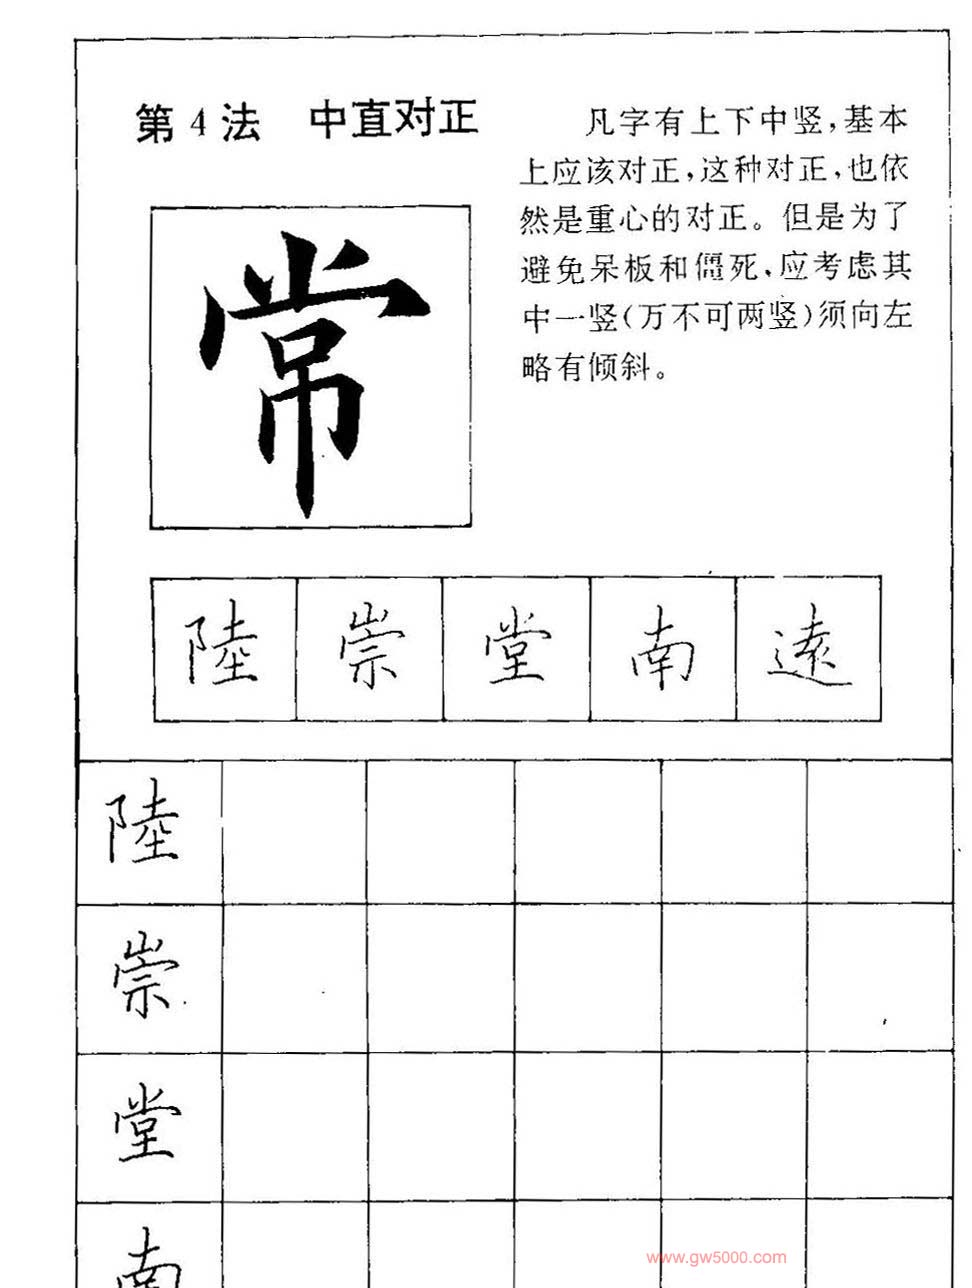 第4法 中直对正
凡字有上下中竖,基本
上应该对正,这种对正,也依
然是重心的对正。但是为了
避免呆板和僵死,应考虑其
中一竖(万不可两竖)须向左
略有倾斜。
常
陸 崇 堂 南 遠
陸
崇
堂
南
www.gw5000.com